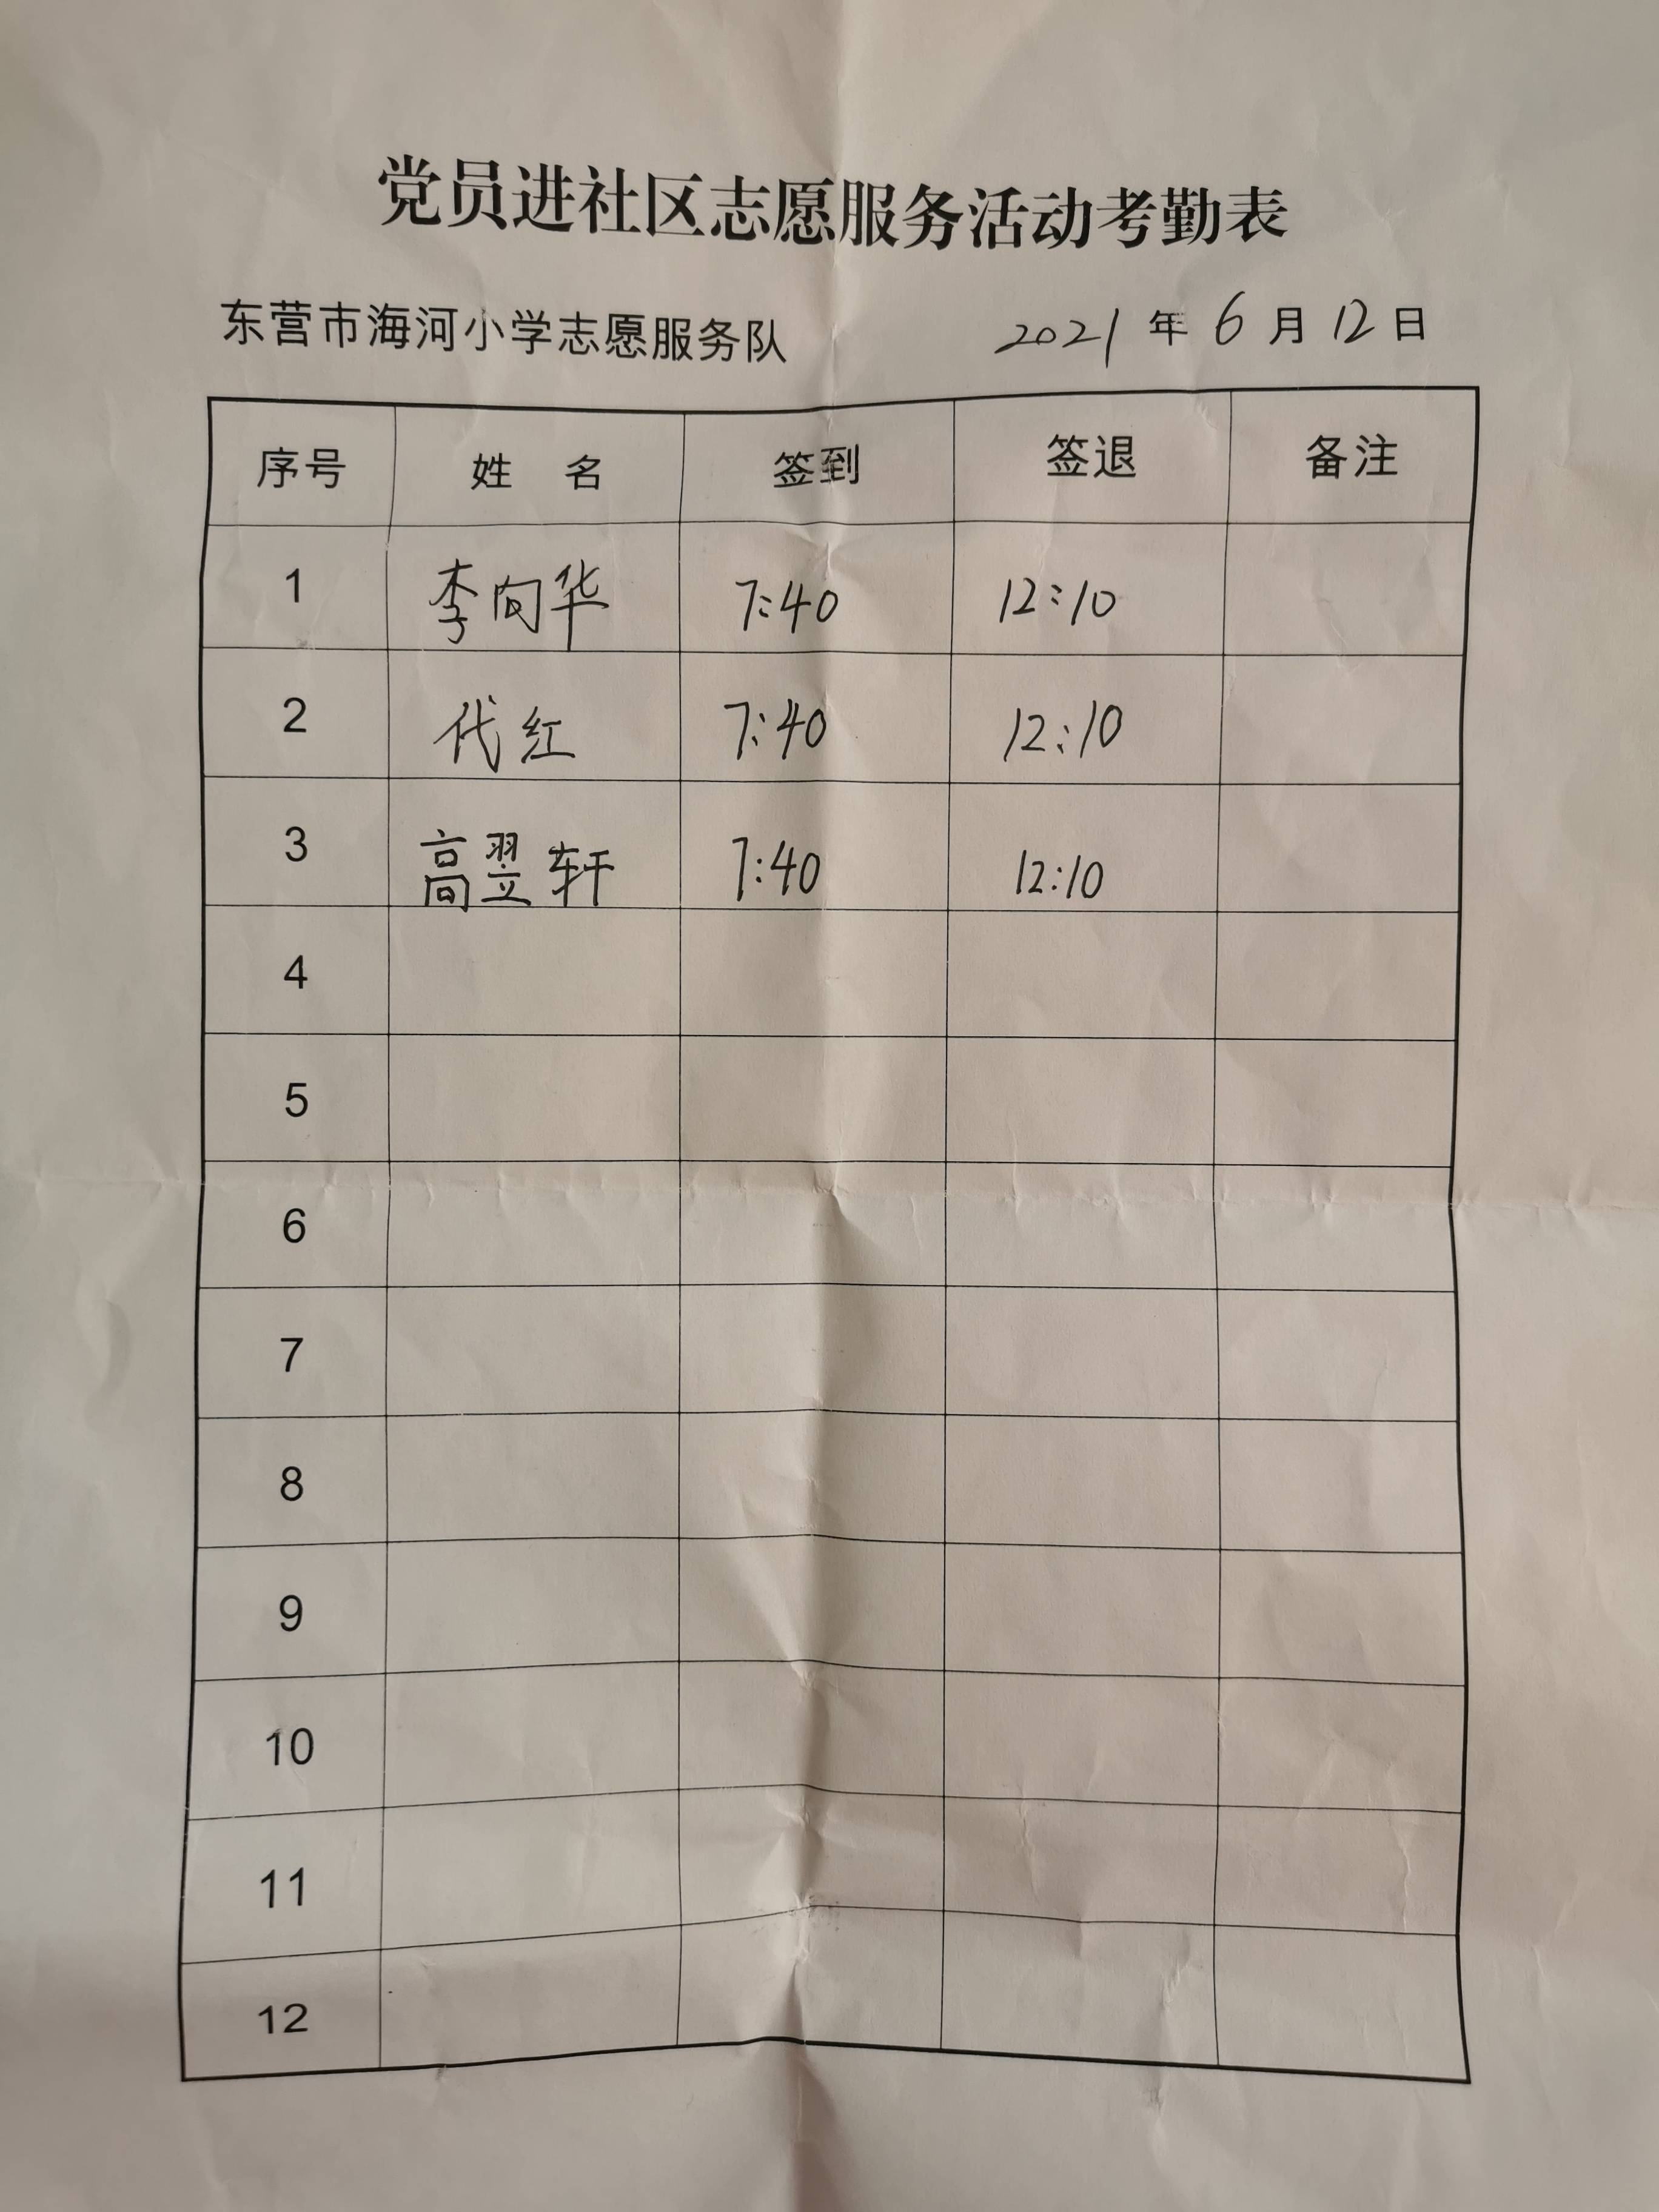 党员进社区志愿服务活动考勤表
东营市海河小学志愿服务队 2021 年 6 月 12 日
序号 姓 名 签到 签退 备注
1 李向华 7:40 12:10
2 代红 7:40 12:10
3 高翌轩 7:40 12:10
4
5
6
7
8
9
10
11
12